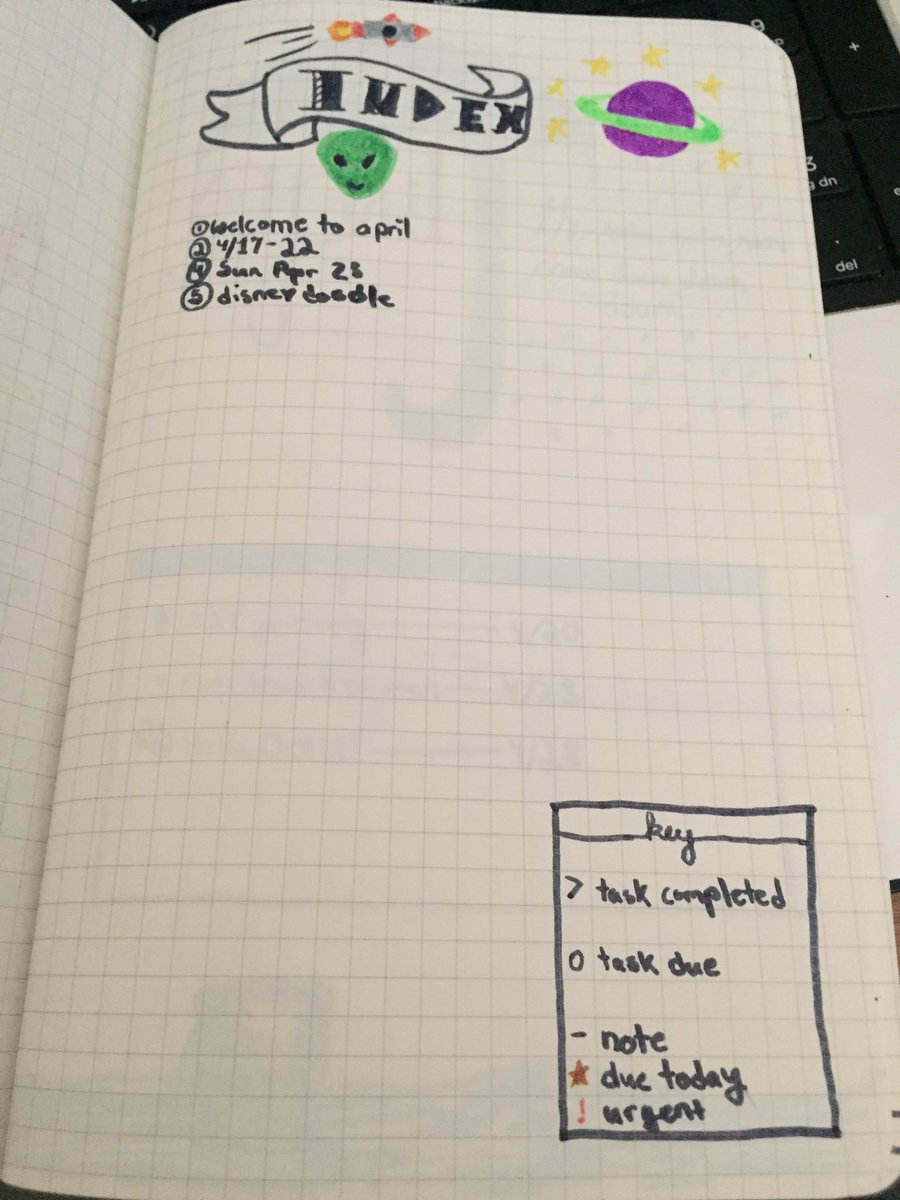 INDEX
① Welcome to april
② 4/17-22
④ Sun Apr 23
⑤ disney doodle
key
> task completed
O task due
- note
★ due today
! urgent
+
del